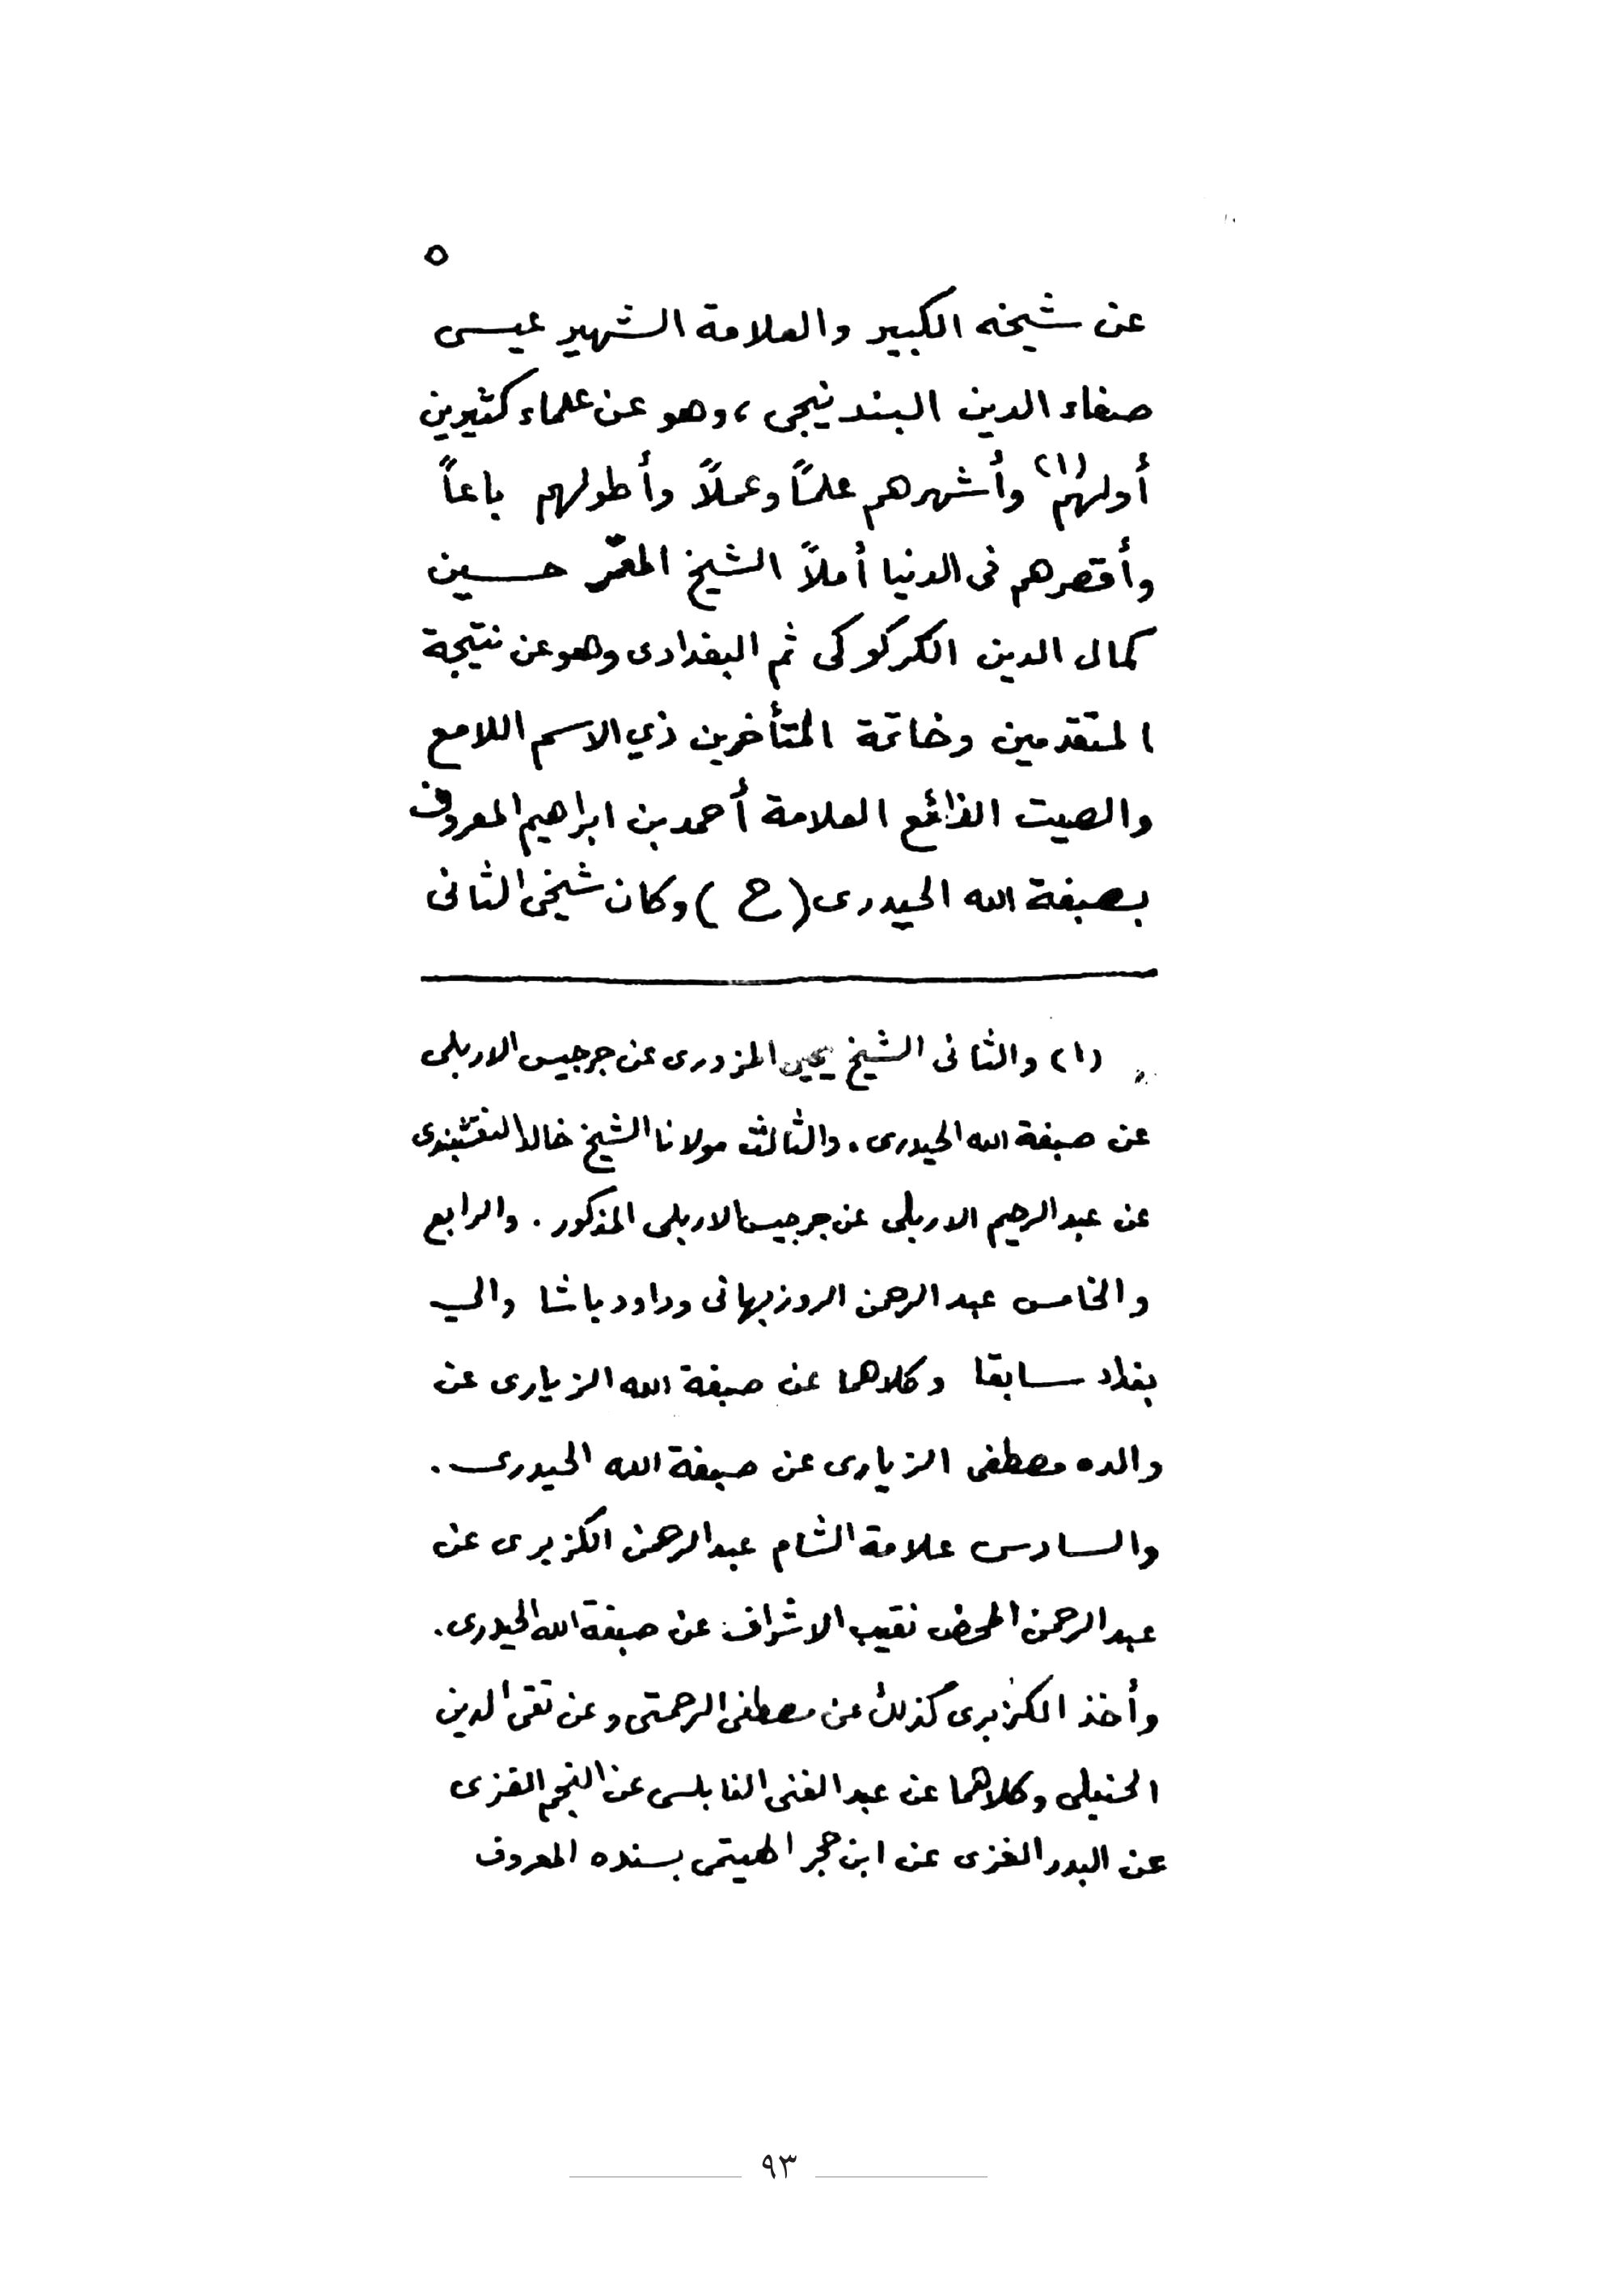 ٥
عن شيخه الكبير والعلامة الشهير عيسى
صفاء الدين البندنيجى ، وهو عن علماء كثيرين
أولهم (١) وأشهرهم علماً وعملاً وأطولهم باعاً
وأقصرهم فى الدنيا أملاً الشيخ المعمّر حسين
كمال الدين الكركوكى ثم البغدادى وهو عن نتيجة
المتقدمين وخاتمة المتأخرين ذي الاسم اللامع
والصيت الذائع العلامة أحمد بن ابراهيم المعروف
بصبغة الله الحيدرى ( ح ) وكان شيخى الثانى
(١) والثانى الشيخ يحيى المزورى عن جرجيس الاربلى
عن صبغة الله الحيدرى . والثالث مولانا الشيخ خالد النقشبندى
عن عبد الرحيم الاربلى عن جرجيس الاربلى المذكور . والرابع
والخامس عبد الرحمن الروزبهانى وداود باشا والي
بغداد سابقا وكلاهما عن صبغة الله الزيارى عن
والده مصطفى الزيارى عن صبغة الله الحيدرى .
والسادس علامة الشام عبد الرحمن الكزبرى عن
عبد الرحمن المحض نقيب الاشراف عن صبغة الله الحيدرى .
وأخذ الكزبرى كذلك عن مصطفى الرحمتى وعن تقى الدين
الحنبلى وكلاهما عن عبد الغنى النابلسى عن النجم الغزى
عن البدر الغزى عن ابن حجر الهيتمى بسنده المعروف
٩٣